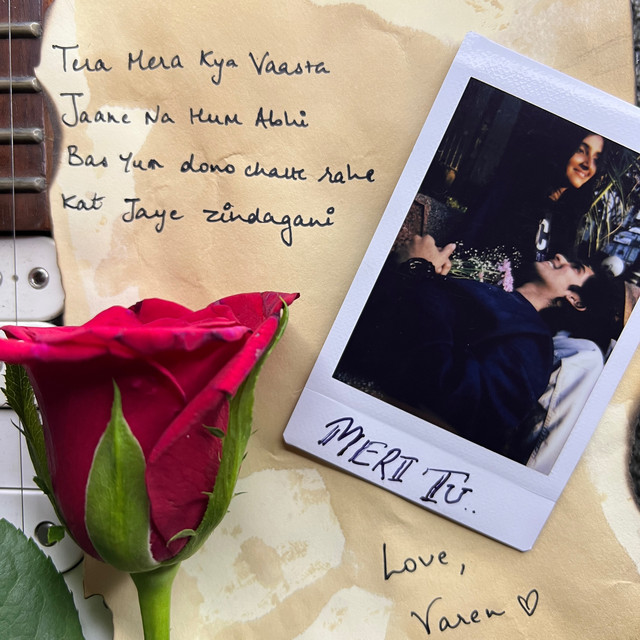 Tera Mera Kya Vaasta
Jaane Na Hum Abhi
Bas Yun dono chalte rahe
Kat Jaye zindagani
C
MERI TU..
Love,
Varen ♡